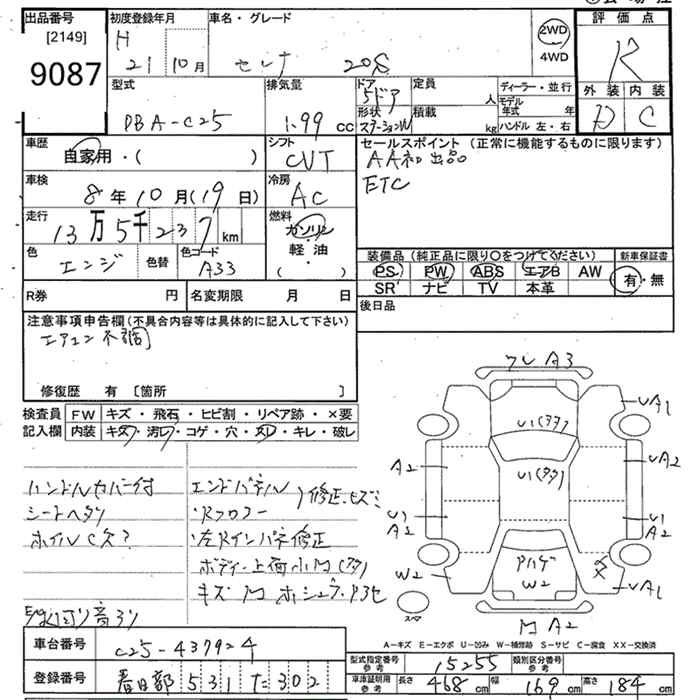 出品番号
[2149]
9087
初度登録年月
H
21 10月
車名・グレード
セレナ 20S
2WD
4WD
評価点
R
外装 内装
D C
型式
DBA-C25
排気量
1.99 cc
ドア
5ドア
形状
ステーションW
定員
人
積載
kg
ディーラー・並行
モデル年式 年
ハンドル 左・右
車歴
自家用・( )
シフト
CVT
セールスポイント(正常に機能するものに限ります)
AA初出品
ETC
車検
8年10月(19日)
冷房
AC
走行
13万5千237km
燃料
ガソリン
軽・油
( )
色
エンジ
色替
色コード
A33
装備品(純正品に限り〇をつけてください)
新車保証書
PS PW ABS エアB AW
SR ナビ TV 本革
有・無
R券 円
名変期限 月 日
後日品
注意事項申告欄(不具合内容等は具体的に記入して下さい)
エアコン不調
修復歴 有 〔箇所 〕
検査員
記入欄
FW キズ・飛石・ヒビ割・リペア跡・×要
内装 キズ・汚レ・コゲ・穴・スレ・キレ・破レ
ハンドルカバー付
シートヘタリ
ホイルC欠?
エンドパネル
・Rフロアー
修正、ヒズミ
・左Rインパネ修正
ボディー上荷小凹(多タ)
ワレ A3
UA1
U1(多タ)
A2
UA2
U1(多タ)
U1
A2
U1
A2
W2
アトハゲ
W2
UA1
スペア
凹 A2
A－キズ E－エクボ U－凹み W－補修跡 S－サビ C－腐食 XX－交換済
車台番号
C25-437924
登録番号
春日部 531 た 302
型式指定番号
参考
15255
類別区分番号
参考
車庫証明用
参考
長さ 468 cm 幅 169 cm 高さ 184 cm